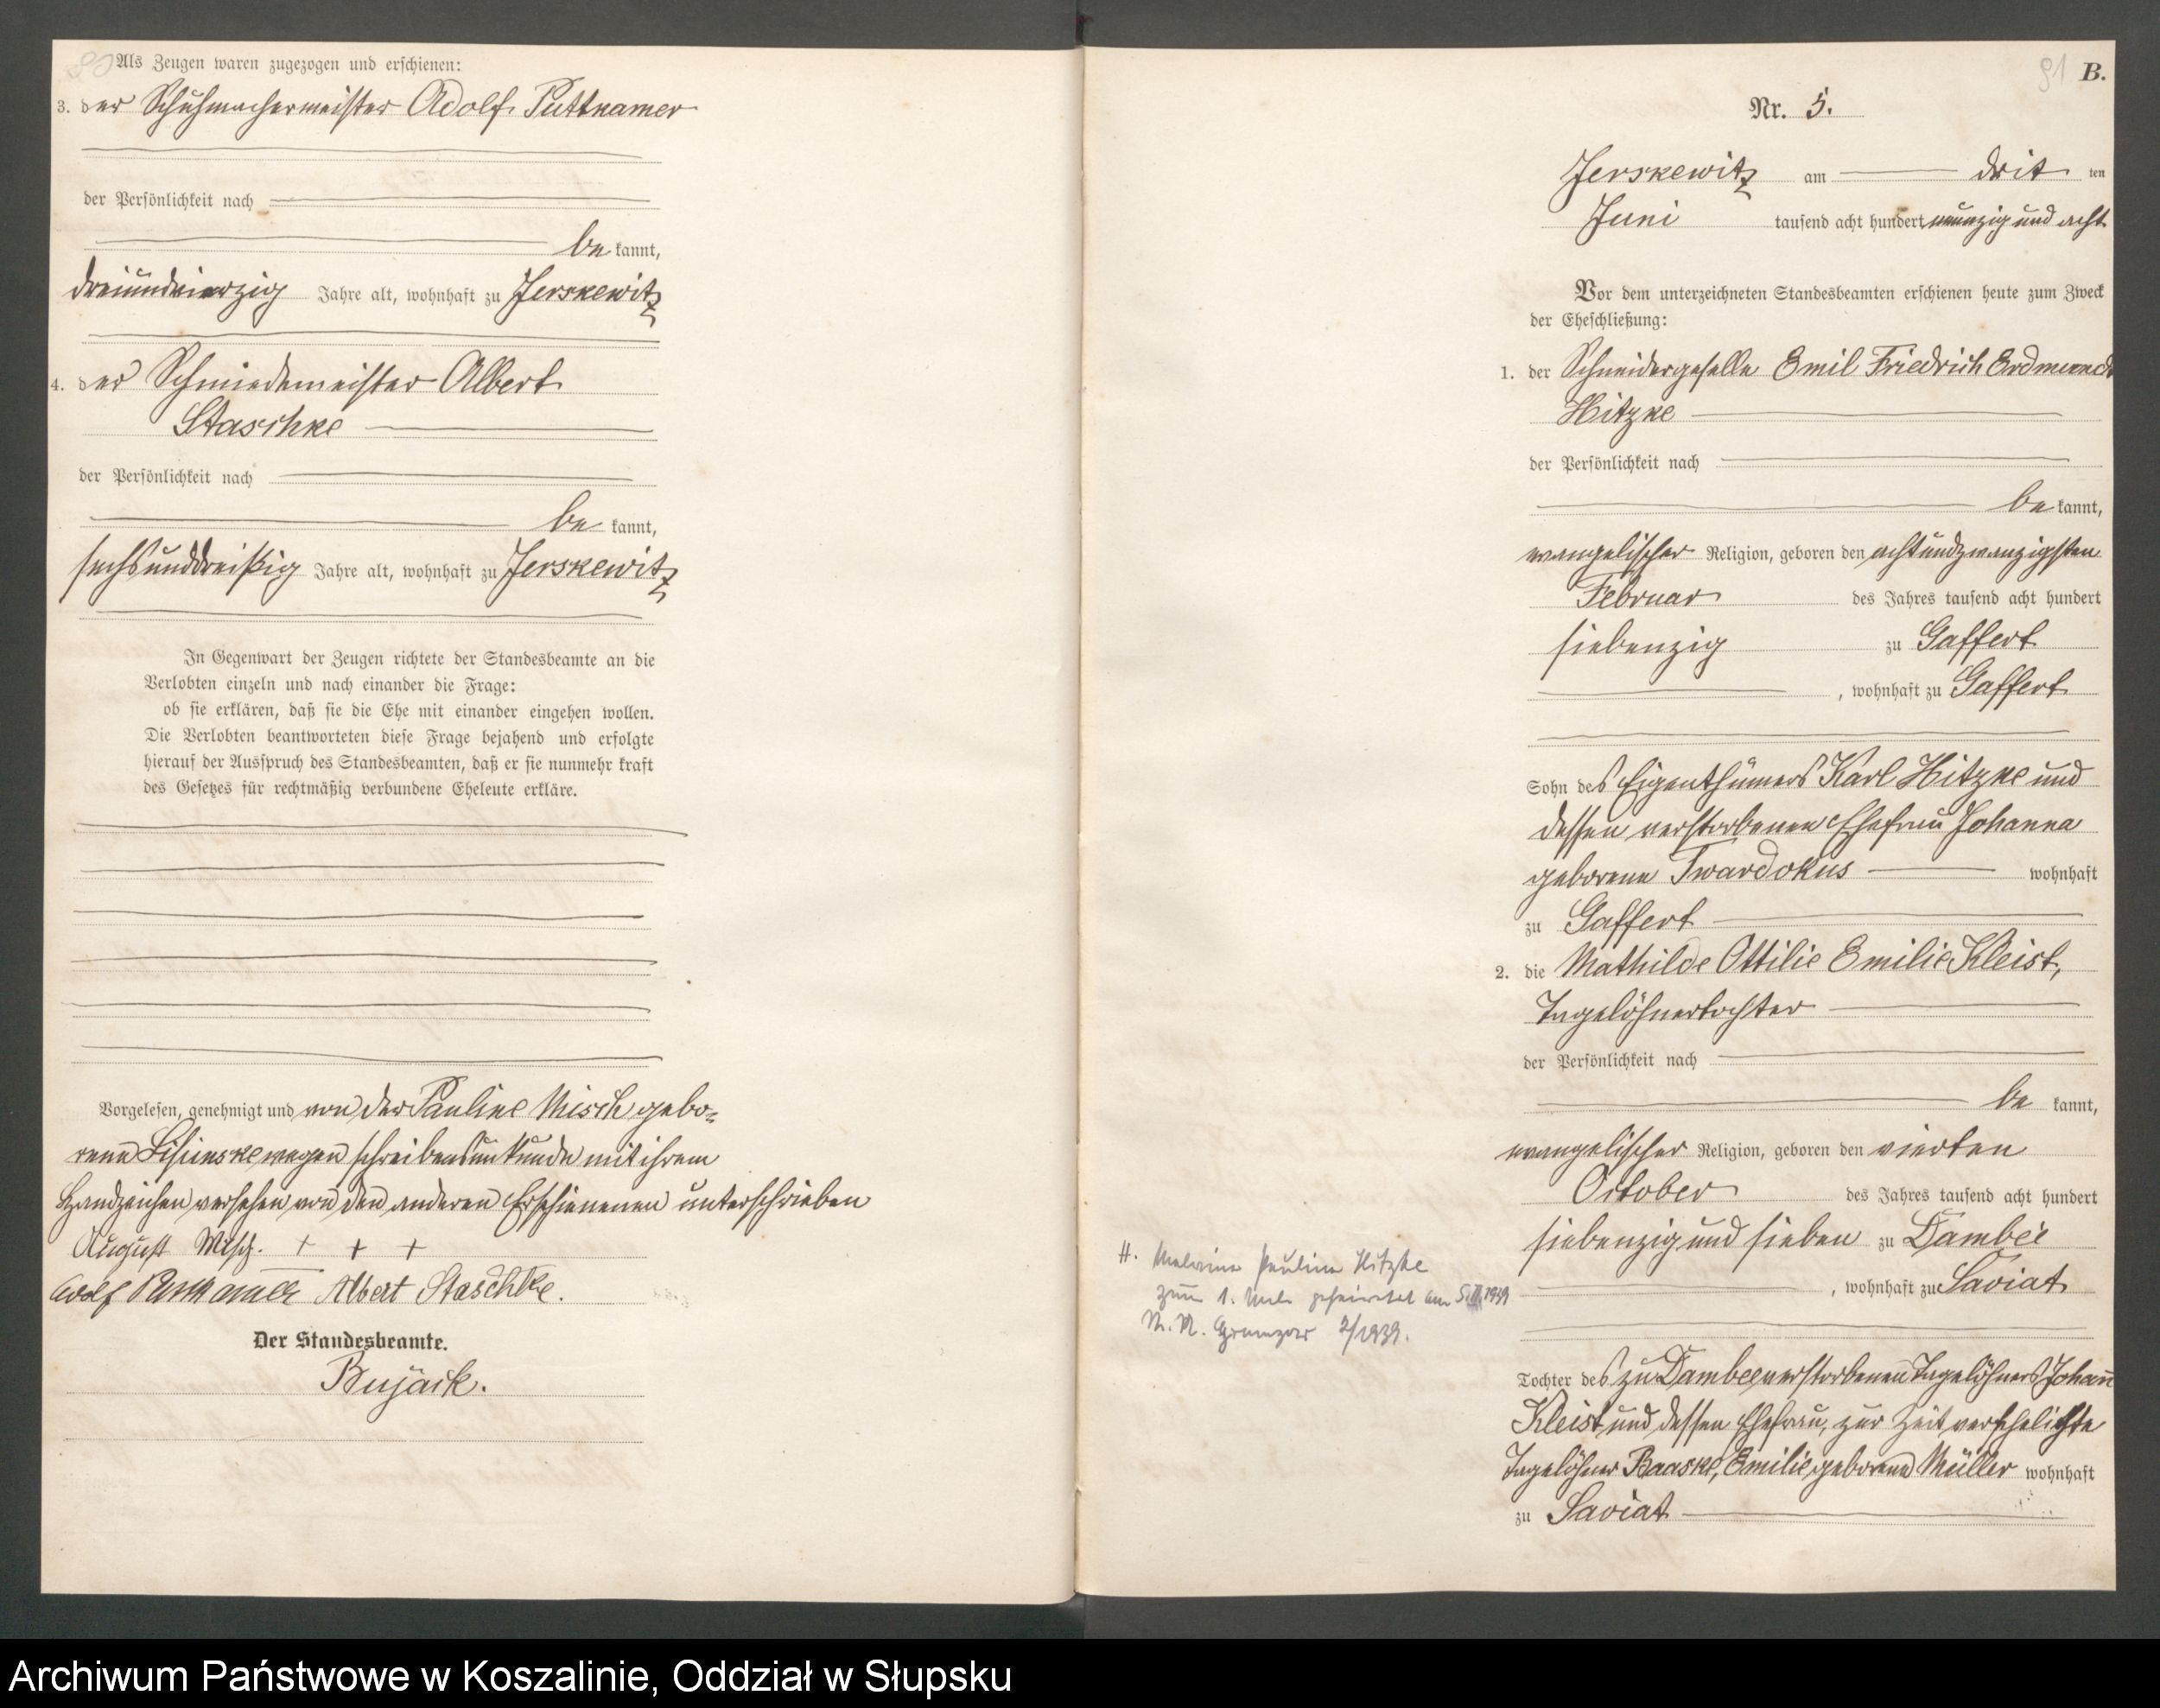 Als Zeugen waren zugezogen und erschienen:
3. der Schuhmachermeister Adolf Puttkamer
der Persönlichkeit nach
be kannt,
dreiundvierzig Jahre alt, wohnhaft zu Jerskewitz
4. der Schmiedemeister Albert
Staschke
der Persönlichkeit nach
be kannt,
sechsunddreißig Jahre alt, wohnhaft zu Jerskewitz
In Gegenwart der Zeugen richtete der Standesbeamte an die
Verlobten einzeln und nach einander die Frage:
ob sie erklären, daß sie die Ehe mit einander eingehen wollen.
Die Verlobten beantworteten diese Frage bejahend und erfolgte
hierauf der Ausspruch des Standesbeamten, daß er sie nunmehr kraft
des Gesetzes für rechtmäßig verbundene Eheleute erkläre.
Vorgelesen, genehmigt und von der Pauline Misch gebo-
rene wegen schreibensunkunde mit ihrem
Handzeichen versehen von den anderen Erschienenen unterschrieben
August Misch. + + +
Adolf Puttkamer Albert Staschke.
Der Standesbeamte.
Bujack.
91 B.
Nr. 5.
Jerskewitz am drit ten
Juni tausend acht hundert neunzig und acht
Vor dem unterzeichneten Standesbeamten erschienen heute zum Zweck
der Eheschließung:
1. der Schneidergeselle Emil Friedrich Erdmann
Hitzke
der Persönlichkeit nach
be kannt,
evangelischer Religion, geboren den achtundzwanzigsten
Februar des Jahres tausend acht hundert
siebenzig zu Gaffert
, wohnhaft zu Gaffert
Sohn des Eigenthümers Karl Hitzke und
dessen verstorbenen Ehefrau Johanna
geborene Twardokus wohnhaft
zu Gaffert
2. die Mathilde Ottilie Emilie Kleist,
Tagelöhnertochter
der Persönlichkeit nach
be kannt,
evangelischer Religion, geboren den vierten
October des Jahres tausend acht hundert
siebenzig und sieben zu Dambee
H. Pauline Hitzke
zum 1. Mal geheiratet am 5.II.1939
2/1939.
, wohnhaft zu Saviat
Tochter des zu Dambee verstorbenen Tagelöhners Johann
Kleist und dessen Ehefrau, zur Zeit verehelichte
Tagelöhner Baaske, Emilie geborene Müller wohnhaft
zu Saviat
Archiwum Państwowe w Koszalinie, Oddział w Słupsku